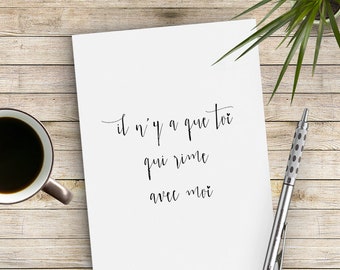 il n'y a que toi
qui rime
avec moi